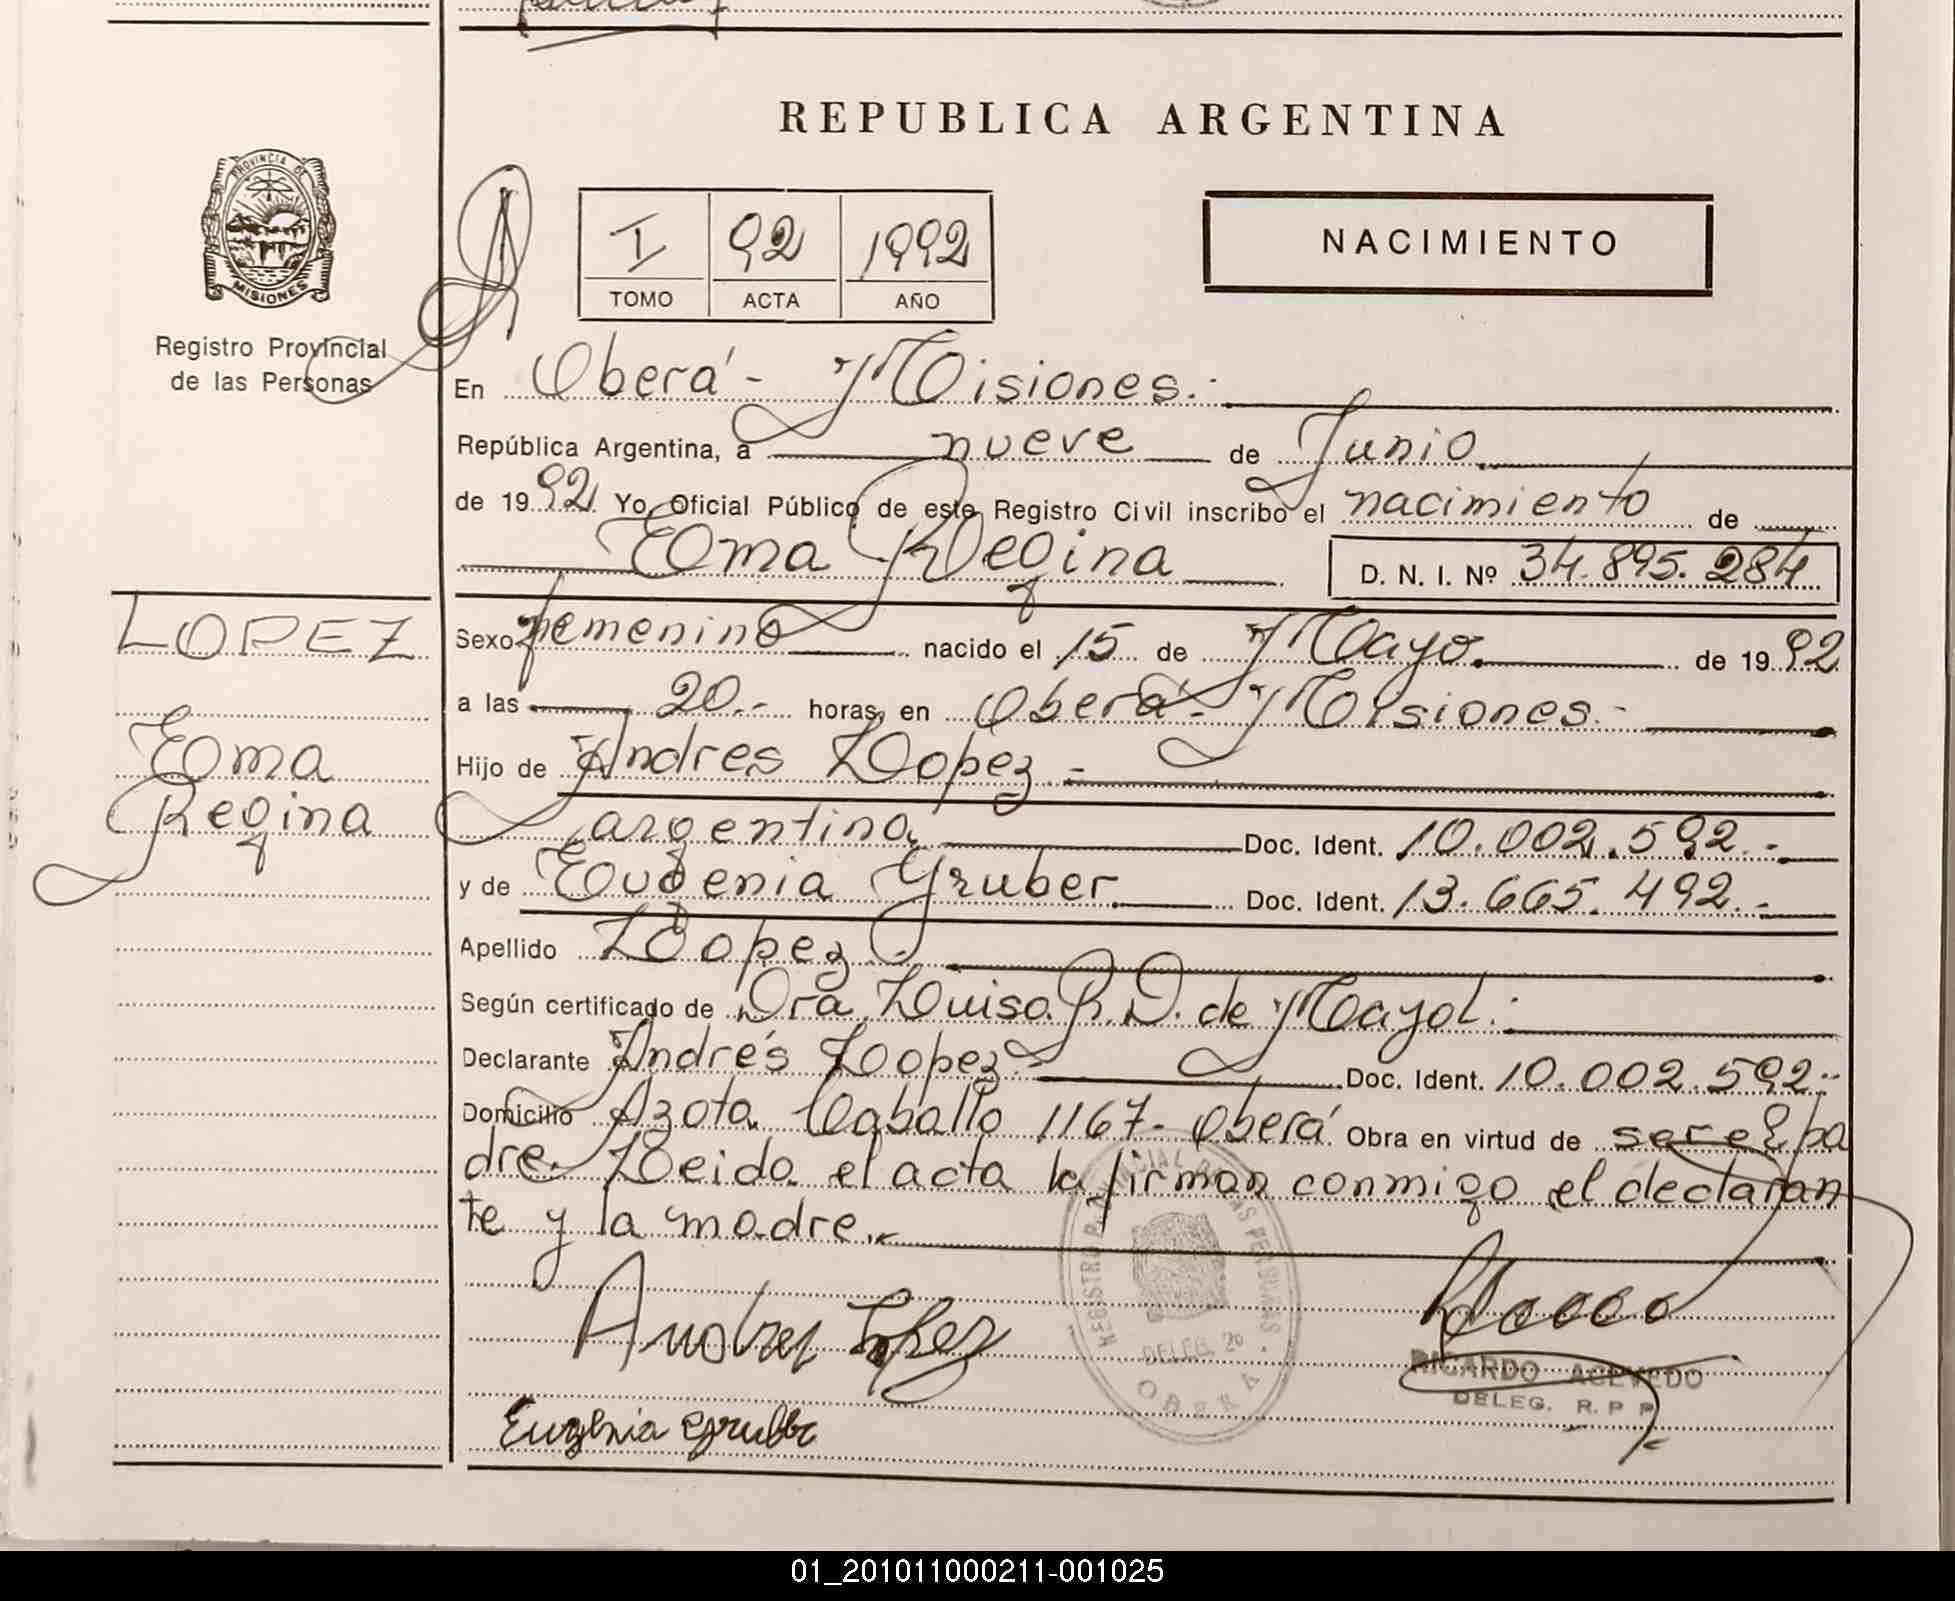 REPUBLICA ARGENTINA
PROVINCIA DE
MISIONES
Registro Provincial
de las Personas
I 92 1992
TOMO ACTA AÑO
NACIMIENTO
En Oberá - Misiones.-
República Argentina, a nueve de Junio
de 1992 Yo, Oficial Público de este Registro Civil inscribo el nacimiento de
Ema Regina D. N. I. Nº 34.895.284
LOPEZ
Ema
Regina
Sexo femenino nacido el 15 de Mayo. de 1992
a las 20.- horas, en Oberá - Misiones.-
Hijo de Andres Lopez.-
argentina Doc. Ident. 10.002.592.-
y de Eugenia Gruber Doc. Ident. 13.665.492.-
Apellido Lopez
Según certificado de Dra. Luisa R. D. de Mayol.-
Declarante Andrés Lopez.- Doc. Ident. 10.002.592.-
Domicilio Azota Caballo 1167 - Oberá Obra en virtud de ser el pa
dre. Leida el acta la firman conmigo el declaran
te y la madre.-
Andres Lopez
REGISTRO PROVINCIAL DE LAS PERSONAS
DELEG. 20
OBERA
RICARDO ACEVEDO
DELEG. R. P P
Eugenia Gruber
01_201011000211-001025